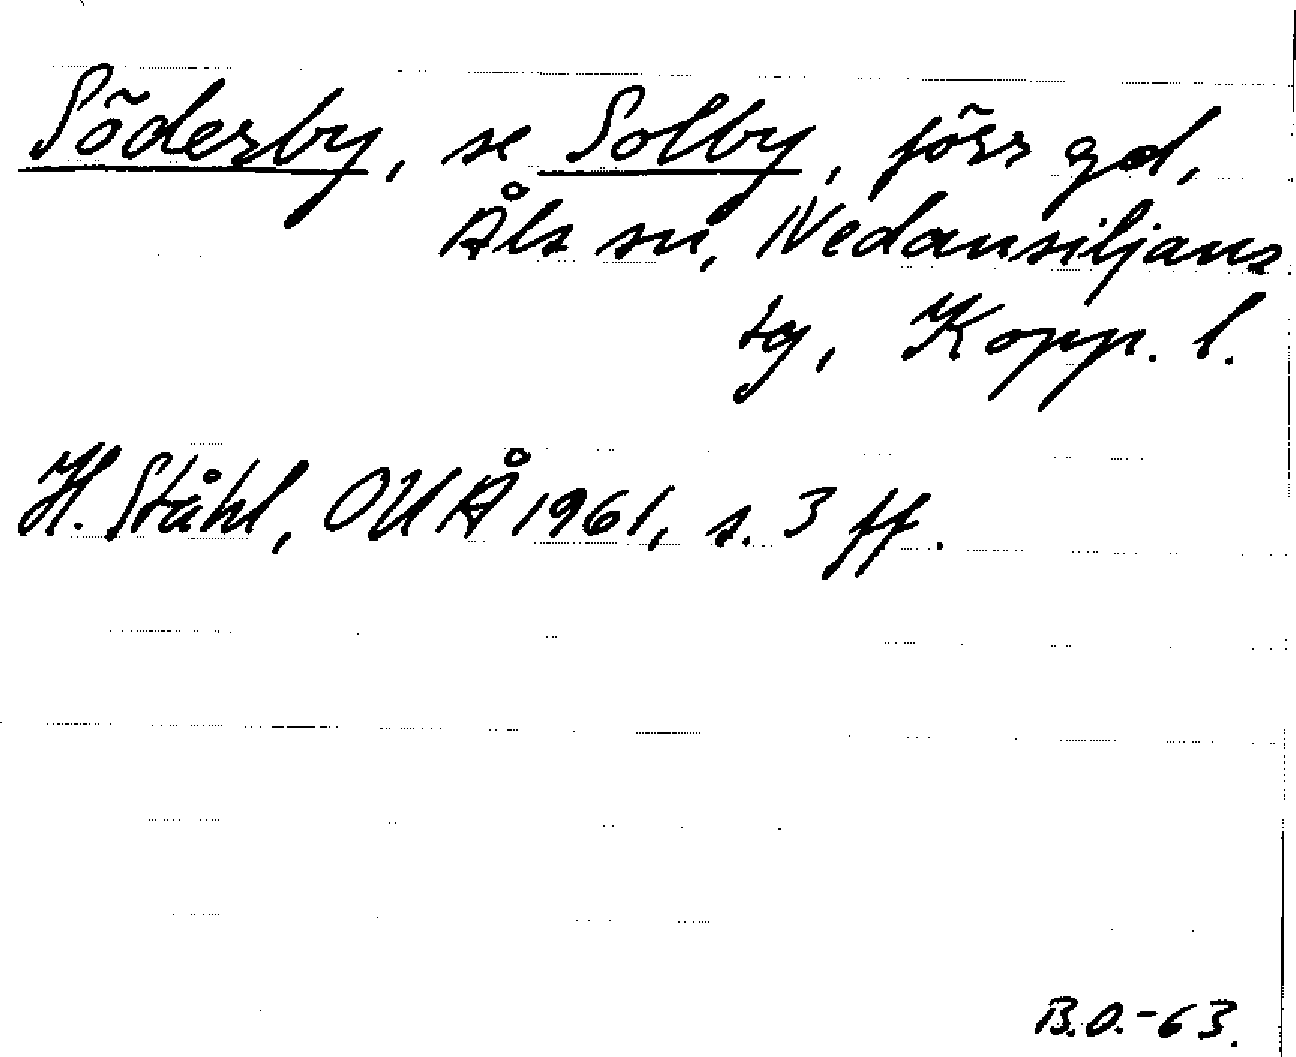 Söderby, se Solby, förr gd,
Åls sn, Nedansiljans
tg, Kopp. l.
H. Ståhl, OUÅ 1961, s. 3 ff.
B.O.-63.